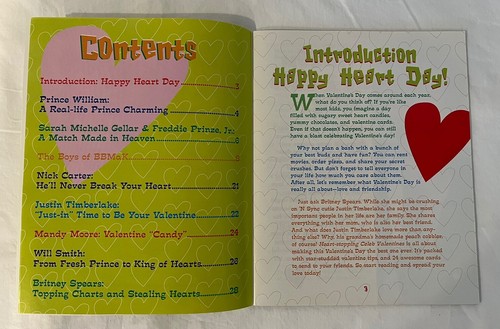 Contents
Introduction: Happy Heart Day
3
Prince William:
A Real-life Prince Charming
4
Sarah Michelle Gellar & Freddie Prinze, Jr.:
A Match Made in Heaven
6
The Boys of BBMaK
Nick Carter:
He'll Never Break Your Heart
21
Justin Timberlake:
"Just-in" Time to Be Your Valentine
22
Mandy Moore: Valentine "Candy"
24
Will Smith:
From Fresh Prince to King of Hearts
26
Britney Spears:
Topping Charts and Stealing Hearts
28
Introduction
Happy Heart Day!
When Valentine's Day comes around each year,
what do you think of? If you're like
most kids, you imagine a day
filled with sugary sweet heart candies,
yummy chocolates, and valentine cards.
Even if that doesn't happen, you can still
have a blast celebrating Valentine's day!
Why not plan a bash with a bunch of
your best buds and have fun? You can rent
movies, order pizza, and share your secret
crushes. But don't forget to tell everyone in
your life how much you care about them.
After all, let's remember what Valentine's Day is
really all about—love and friendship.
Just ask Britney Spears. While she might be crushing
on 'N Sync cutie Justin Timberlake, she says the most
important people in her life are her family. She shares
everything with her mom, who is also her best friend.
And what does Justin Timberlake love more than any-
thing else? Why, his grandma's homemade peach cobbler,
of course! Heart-stopping Celeb Valentines is all about
making this Valentine's Day the best one ever. It's packed
with star-studded valentine tips, and 24 awesome cards
to send to your friends. So start reading and spread your
love today!
3